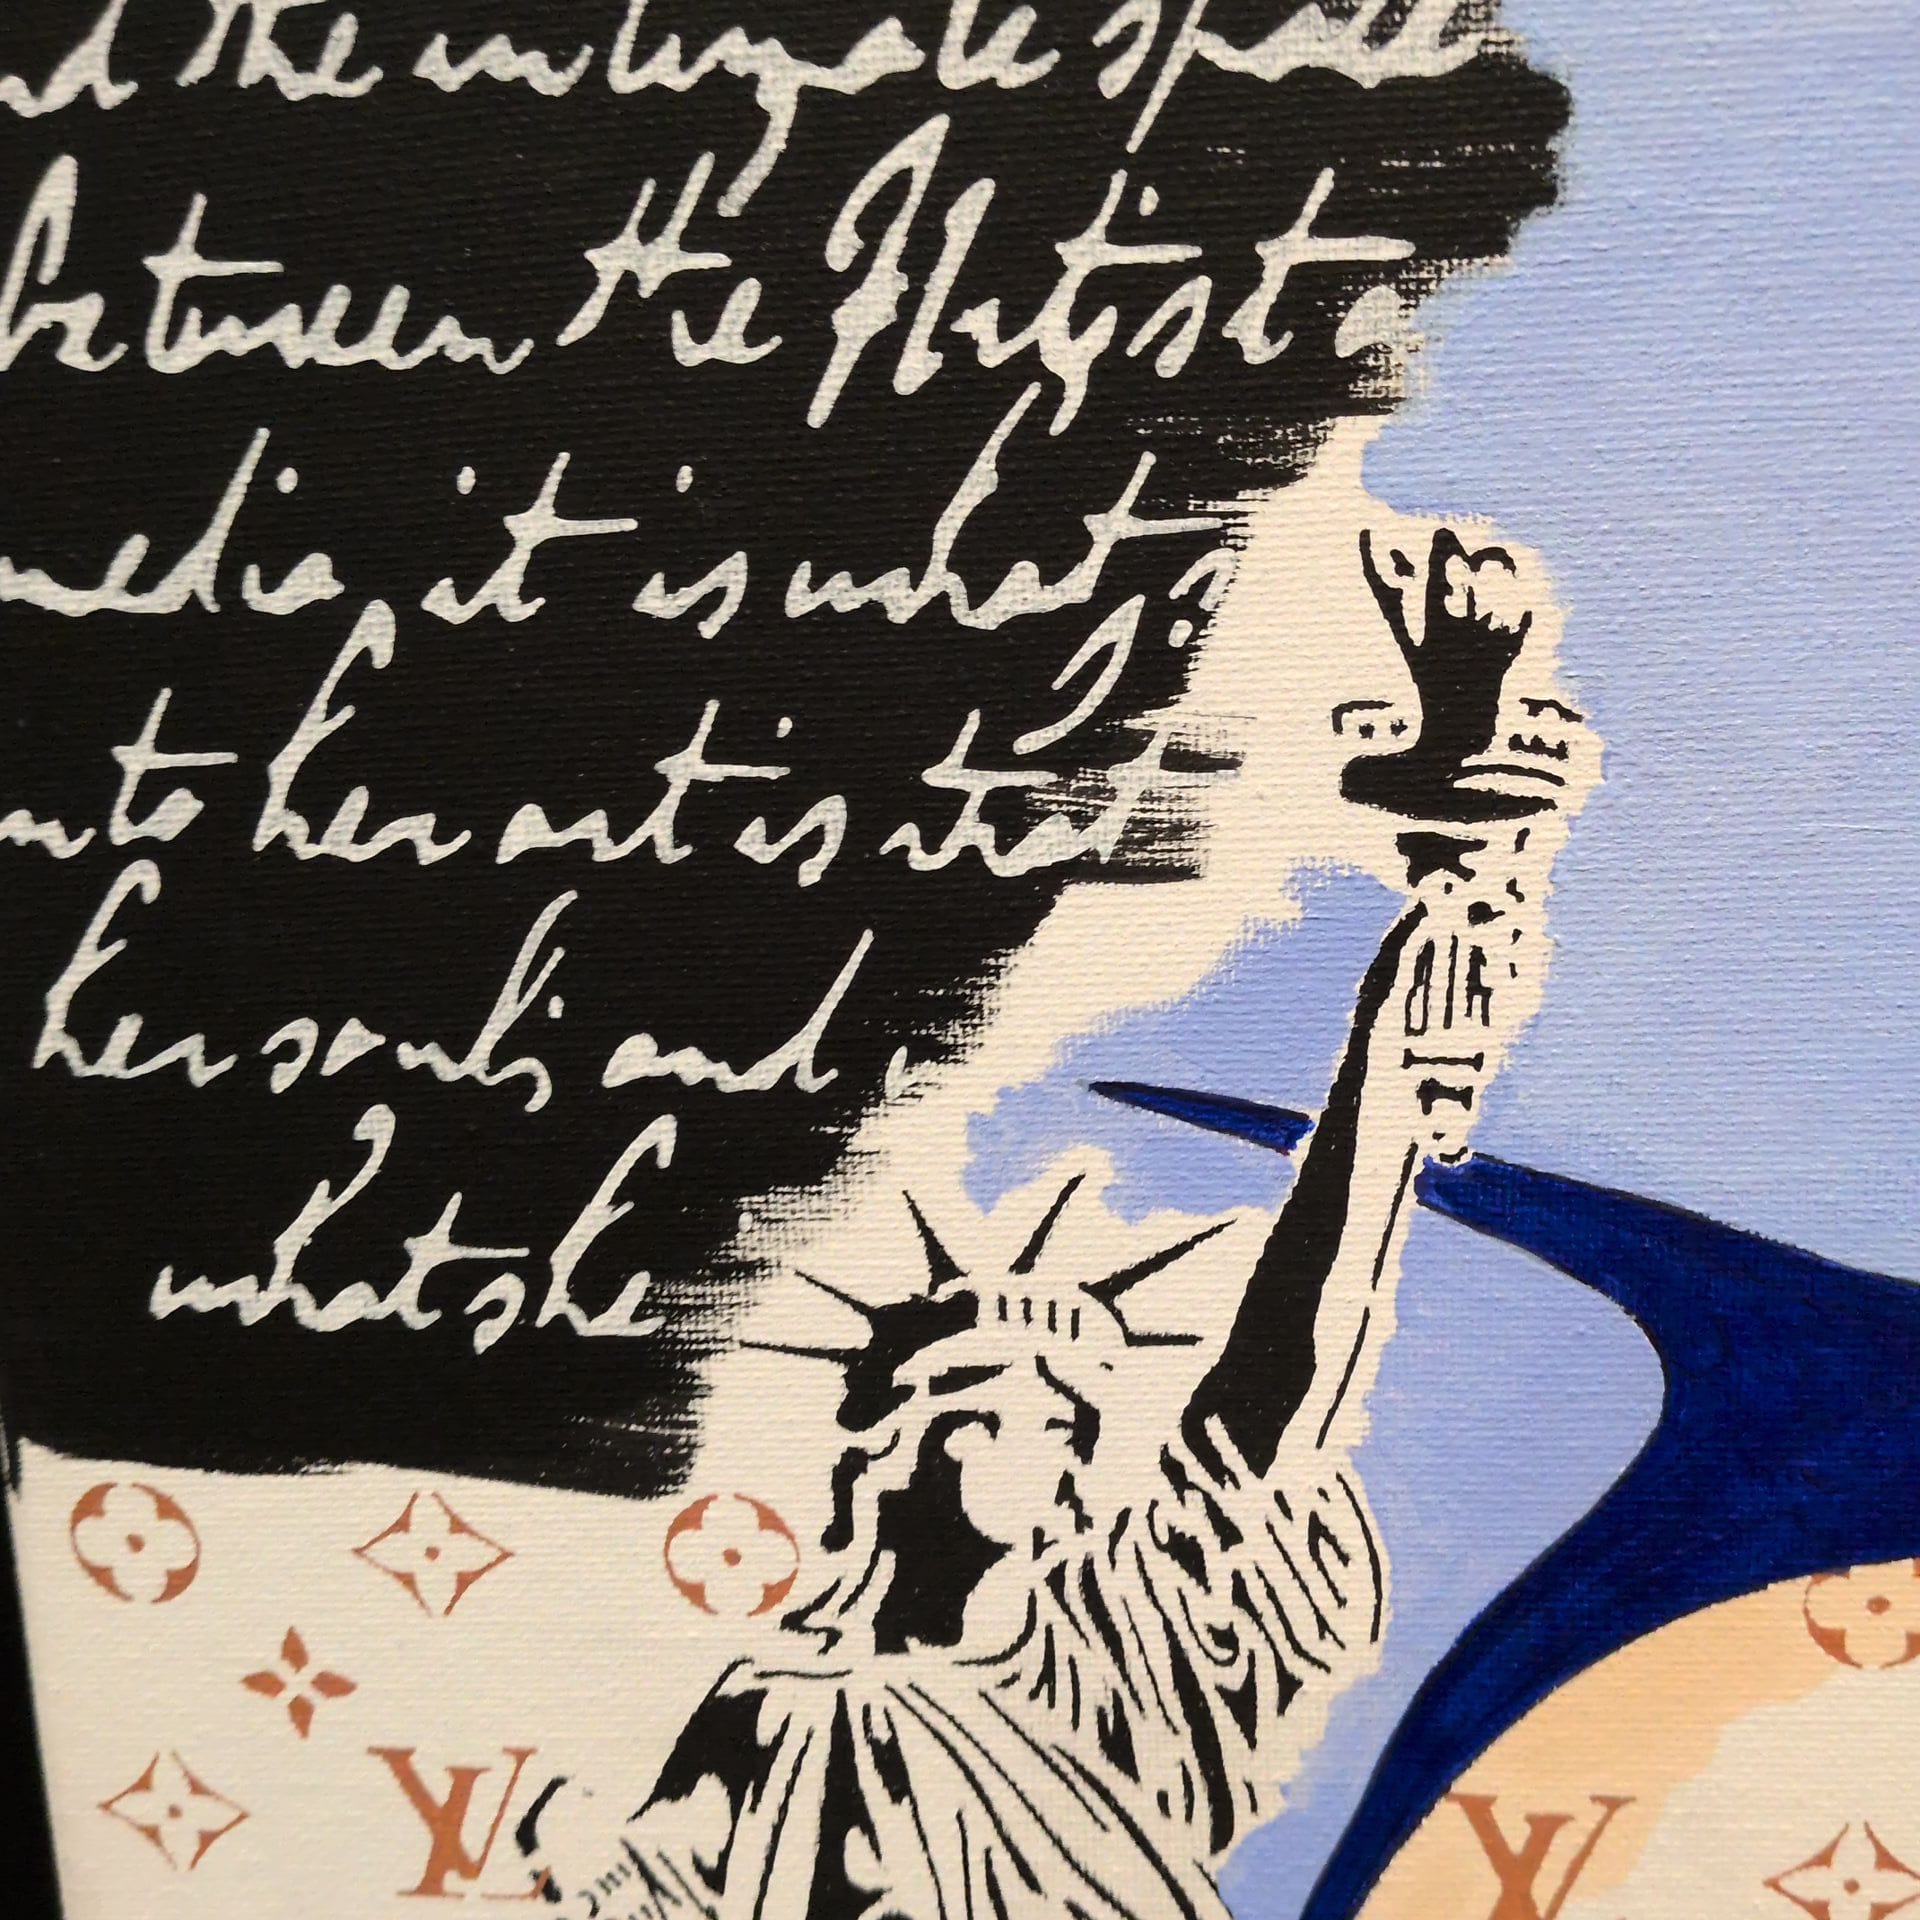 the intimate space
between the Artist a
media, it is what s
into her art is that
her souls and
what she
LV
LV